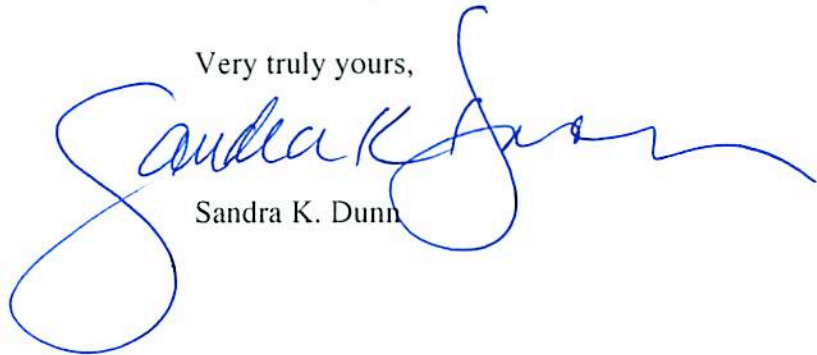 Very truly yours,
Sandra K Dunn
Sandra K. Dunn